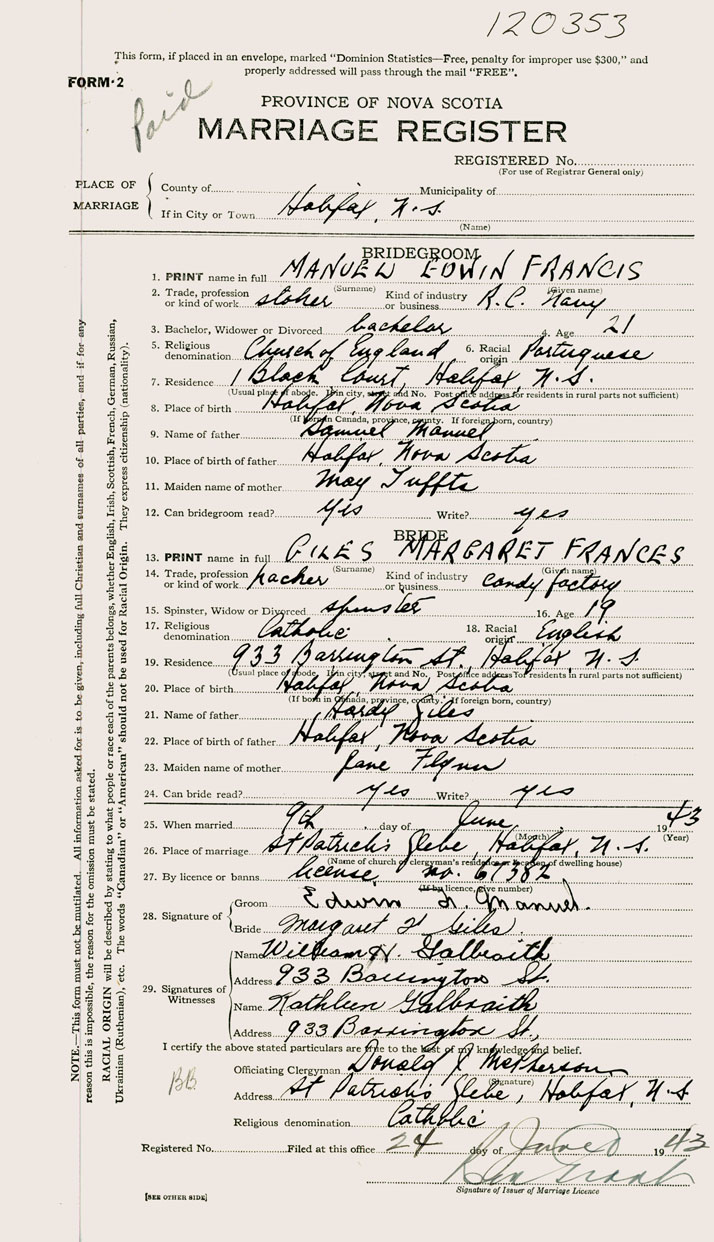 120353
This form, if placed in an envelope, marked "Dominion Statistics—Free, penalty for improper use $300," and
properly addressed will pass through the mail "FREE".
FORM·2
Paid
PROVINCE OF NOVA SCOTIA
MARRIAGE REGISTER
REGISTERED No.
(For use of Registrar General only)
PLACE OF MARRIAGE
County of Municipality of
If in City or Town Halifax, N.S.
(Name)
BRIDEGROOM
1. PRINT name in full MANUEL EDWIN FRANCIS
(Surname) (Given name)
2. Trade, profession or kind of work stoker Kind of industry or business R.C. Navy
3. Bachelor, Widower or Divorced bachelor 4. Age 21
5. Religious denomination Church of England 6. Racial origin Portuguese
7. Residence 1 Black Court, Halifax, N.S.
(Usual place of abode. If in city, street and No. Post office address for residents in rural parts not sufficient)
8. Place of birth Halifax, Nova Scotia
(If born in Canada, province, county. If foreign born, country)
9. Name of father Samuel Manuel
10. Place of birth of father Halifax, Nova Scotia
11. Maiden name of mother May Tuffts
12. Can bridegroom read? Yes Write? yes
BRIDE
13. PRINT name in full GILES MARGARET FRANCES
(Surname) (Given name)
14. Trade, profession or kind of work packer Kind of industry or business candy factory
15. Spinster, Widow or Divorced spinster 16. Age 19
17. Religious denomination Catholic 18. Racial origin English
19. Residence 933 Barrington St., Halifax, N.S.
(Usual place of abode. If in city, street and No. Post office address for residents in rural parts not sufficient)
20. Place of birth Halifax, Nova Scotia
(If born in Canada, province, county. If foreign born, country)
21. Name of father Hardy Giles
22. Place of birth of father Halifax, Nova Scotia
23. Maiden name of mother Jane Flynn
24. Can bride read? Yes Write? yes
25. When married 9th day of June 1943
(Month) (Year)
26. Place of marriage St Patrick's Glebe, Halifax, N.S.
(Name of church or clergyman's residence or location of dwelling house)
27. By licence or banns license no. 67382
(If by licence, give number)
28. Signature of
Groom Edwin F. Manuel.
Bride Margaret F Giles.
29. Signatures of Witnesses
Name William H. Galbraith
Address 933 Barrington St.
Name Kathleen Galbraith
Address 933 Barrington St.,
I certify the above stated particulars are true to the best of my knowledge and belief.
Officiating Clergyman Donald J McPherson
(Signature)
BB
Address St Patrick's Glebe, Halifax, N.S
Religious denomination Catholic
Registered No. Filed at this office 24 day of June 1943
Ben Grant
Signature of Issuer of Marriage Licence
[SEE OTHER SIDE]
NOTE.—This form must not be mutilated. All information asked for is to be given, including full Christian and surnames of all parties, and if for any
reason this is impossible, the reason for the omission must be stated.
RACIAL ORIGIN will be described by stating to what people or race each of the parents belongs, whether English, Irish, Scottish, French, German, Russian,
Ukrainian (Ruthenian), etc. The words "Canadian" or "American" should not be used for Racial Origin. They express citizenship (nationality).